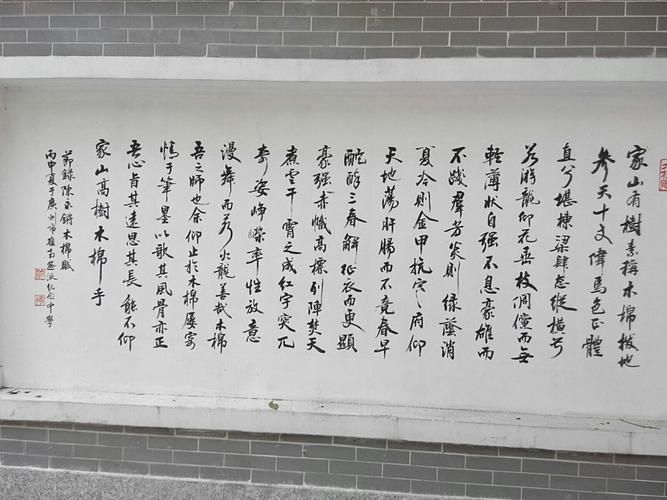 家山有樹素稱木綿拔地
參天十丈偉焉色正體
直兮堪棟梁肆怒縱横兮
若游龍仰花垂枝倜儻而無
輕薄狀自强不息豪雄而
不踐群芳炎則绿蔭消
夏冷則金甲抗寒府仰
天地蕩肝腸而不竟春早
酡酔三春解征衣而更顯
豪强赤幟高標列陣焚天
煮雲干霄之成紅宇突兀
奇姿崢嶸率性放意
漫舞而若火龍善哉木棉
吾之師也余仰止於木棉屡寄
情于筆墨以歌其風骨亦正
吾心旨其遠思其長能不仰
家山高樹木棉乎
節錄陳永鏘木棉賦
丙申夏于廣州市 纪念中學